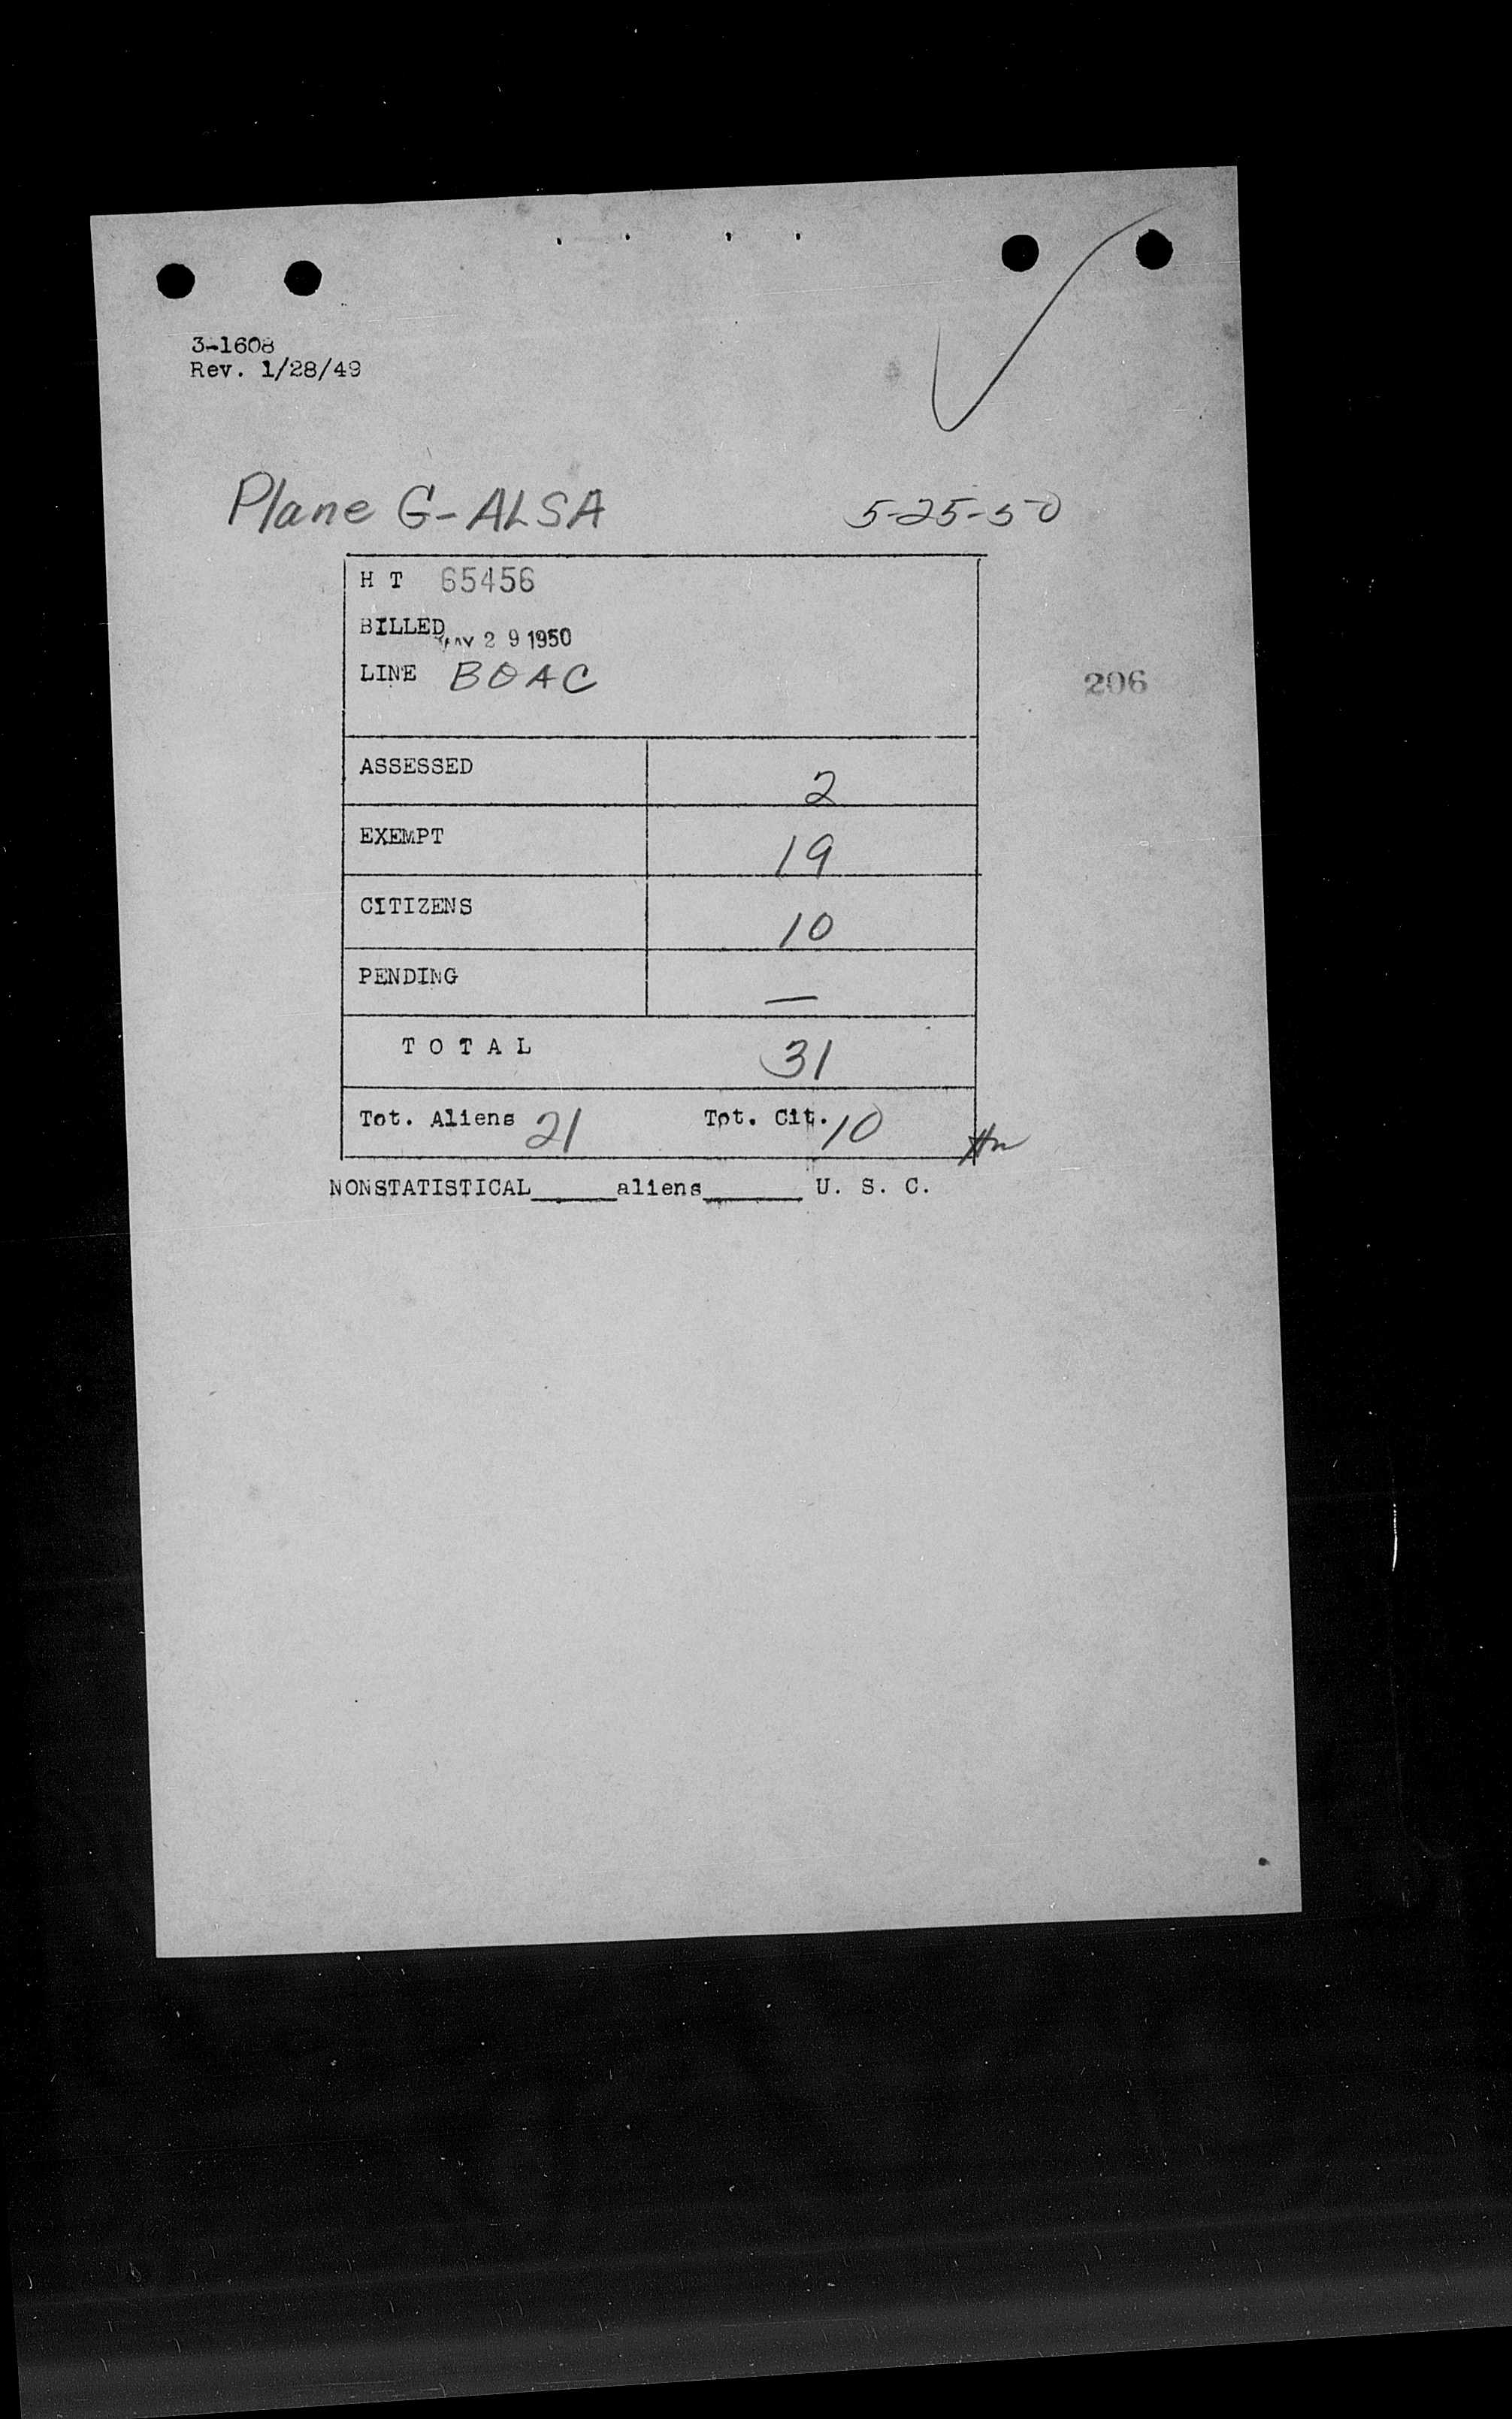 3-1608
Rev. 1/28/49
Plane G-ALSA 5-25-50
H T 65456
BILLED MAY 29 1950
LINE BOAC
206
ASSESSED 2
EXEMPT 19
CITIZENS 10
PENDING —
T O T A L 31
Tot. Aliens 21 Tot. Cit. 10
NONSTATISTICAL______aliens_______ U. S. C.